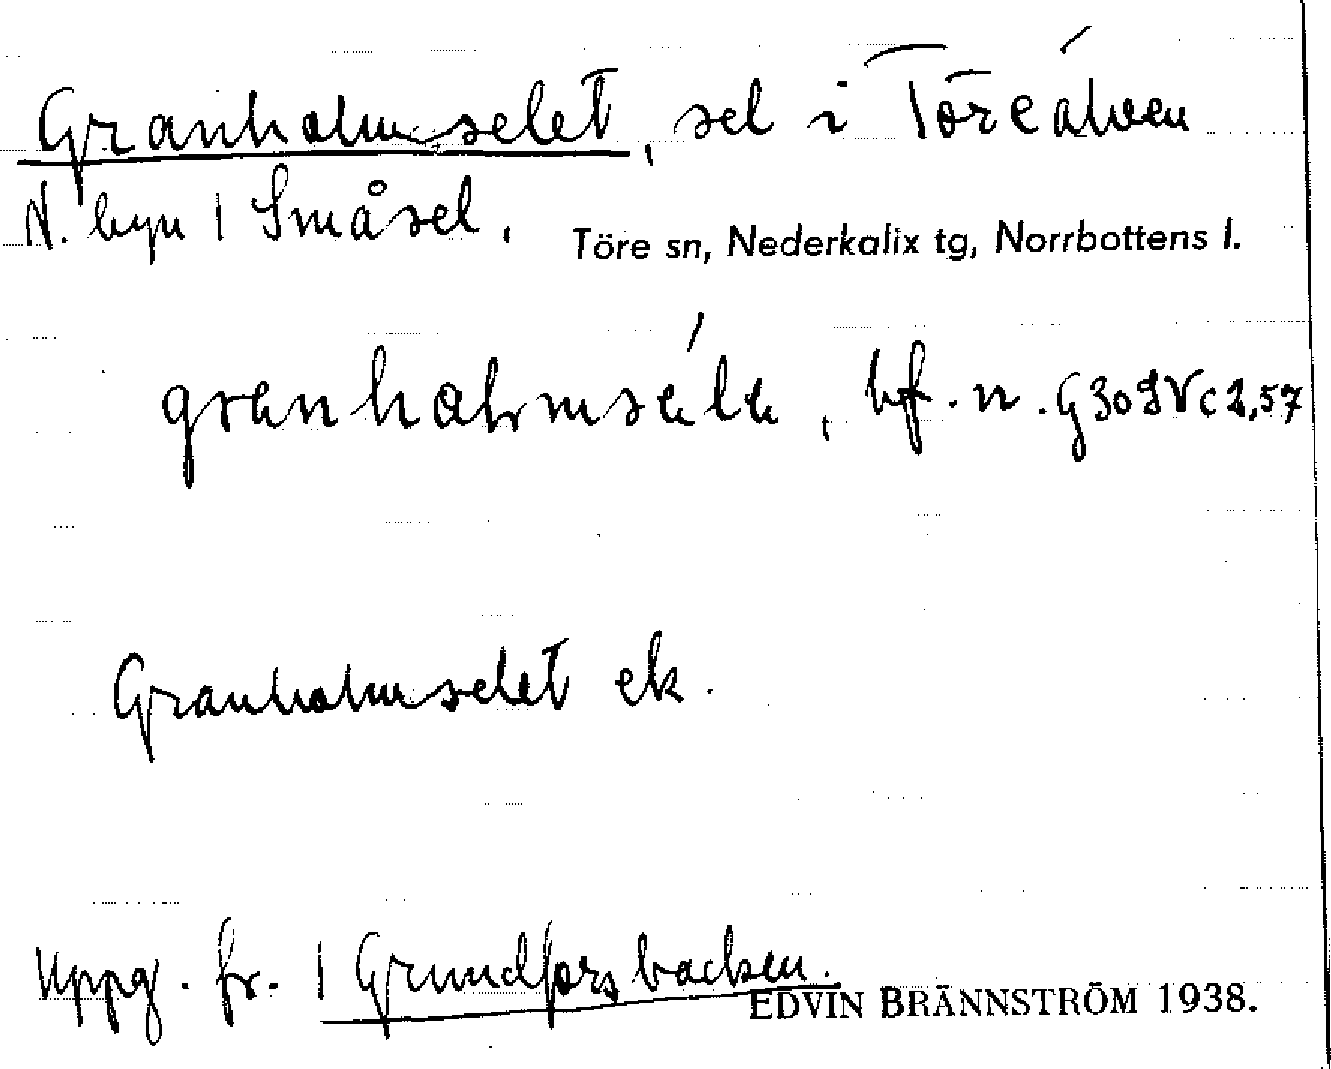 Granholmselet, sel i Töreälven
N. byn | Småsel.
Töre sn, Nederkalix tg, Norrbottens l.
bf. n.
Granholmselet ek.
Uppg. fr. | Grundforsbacken.
EDVIN BRÄNNSTRÖM 1938.